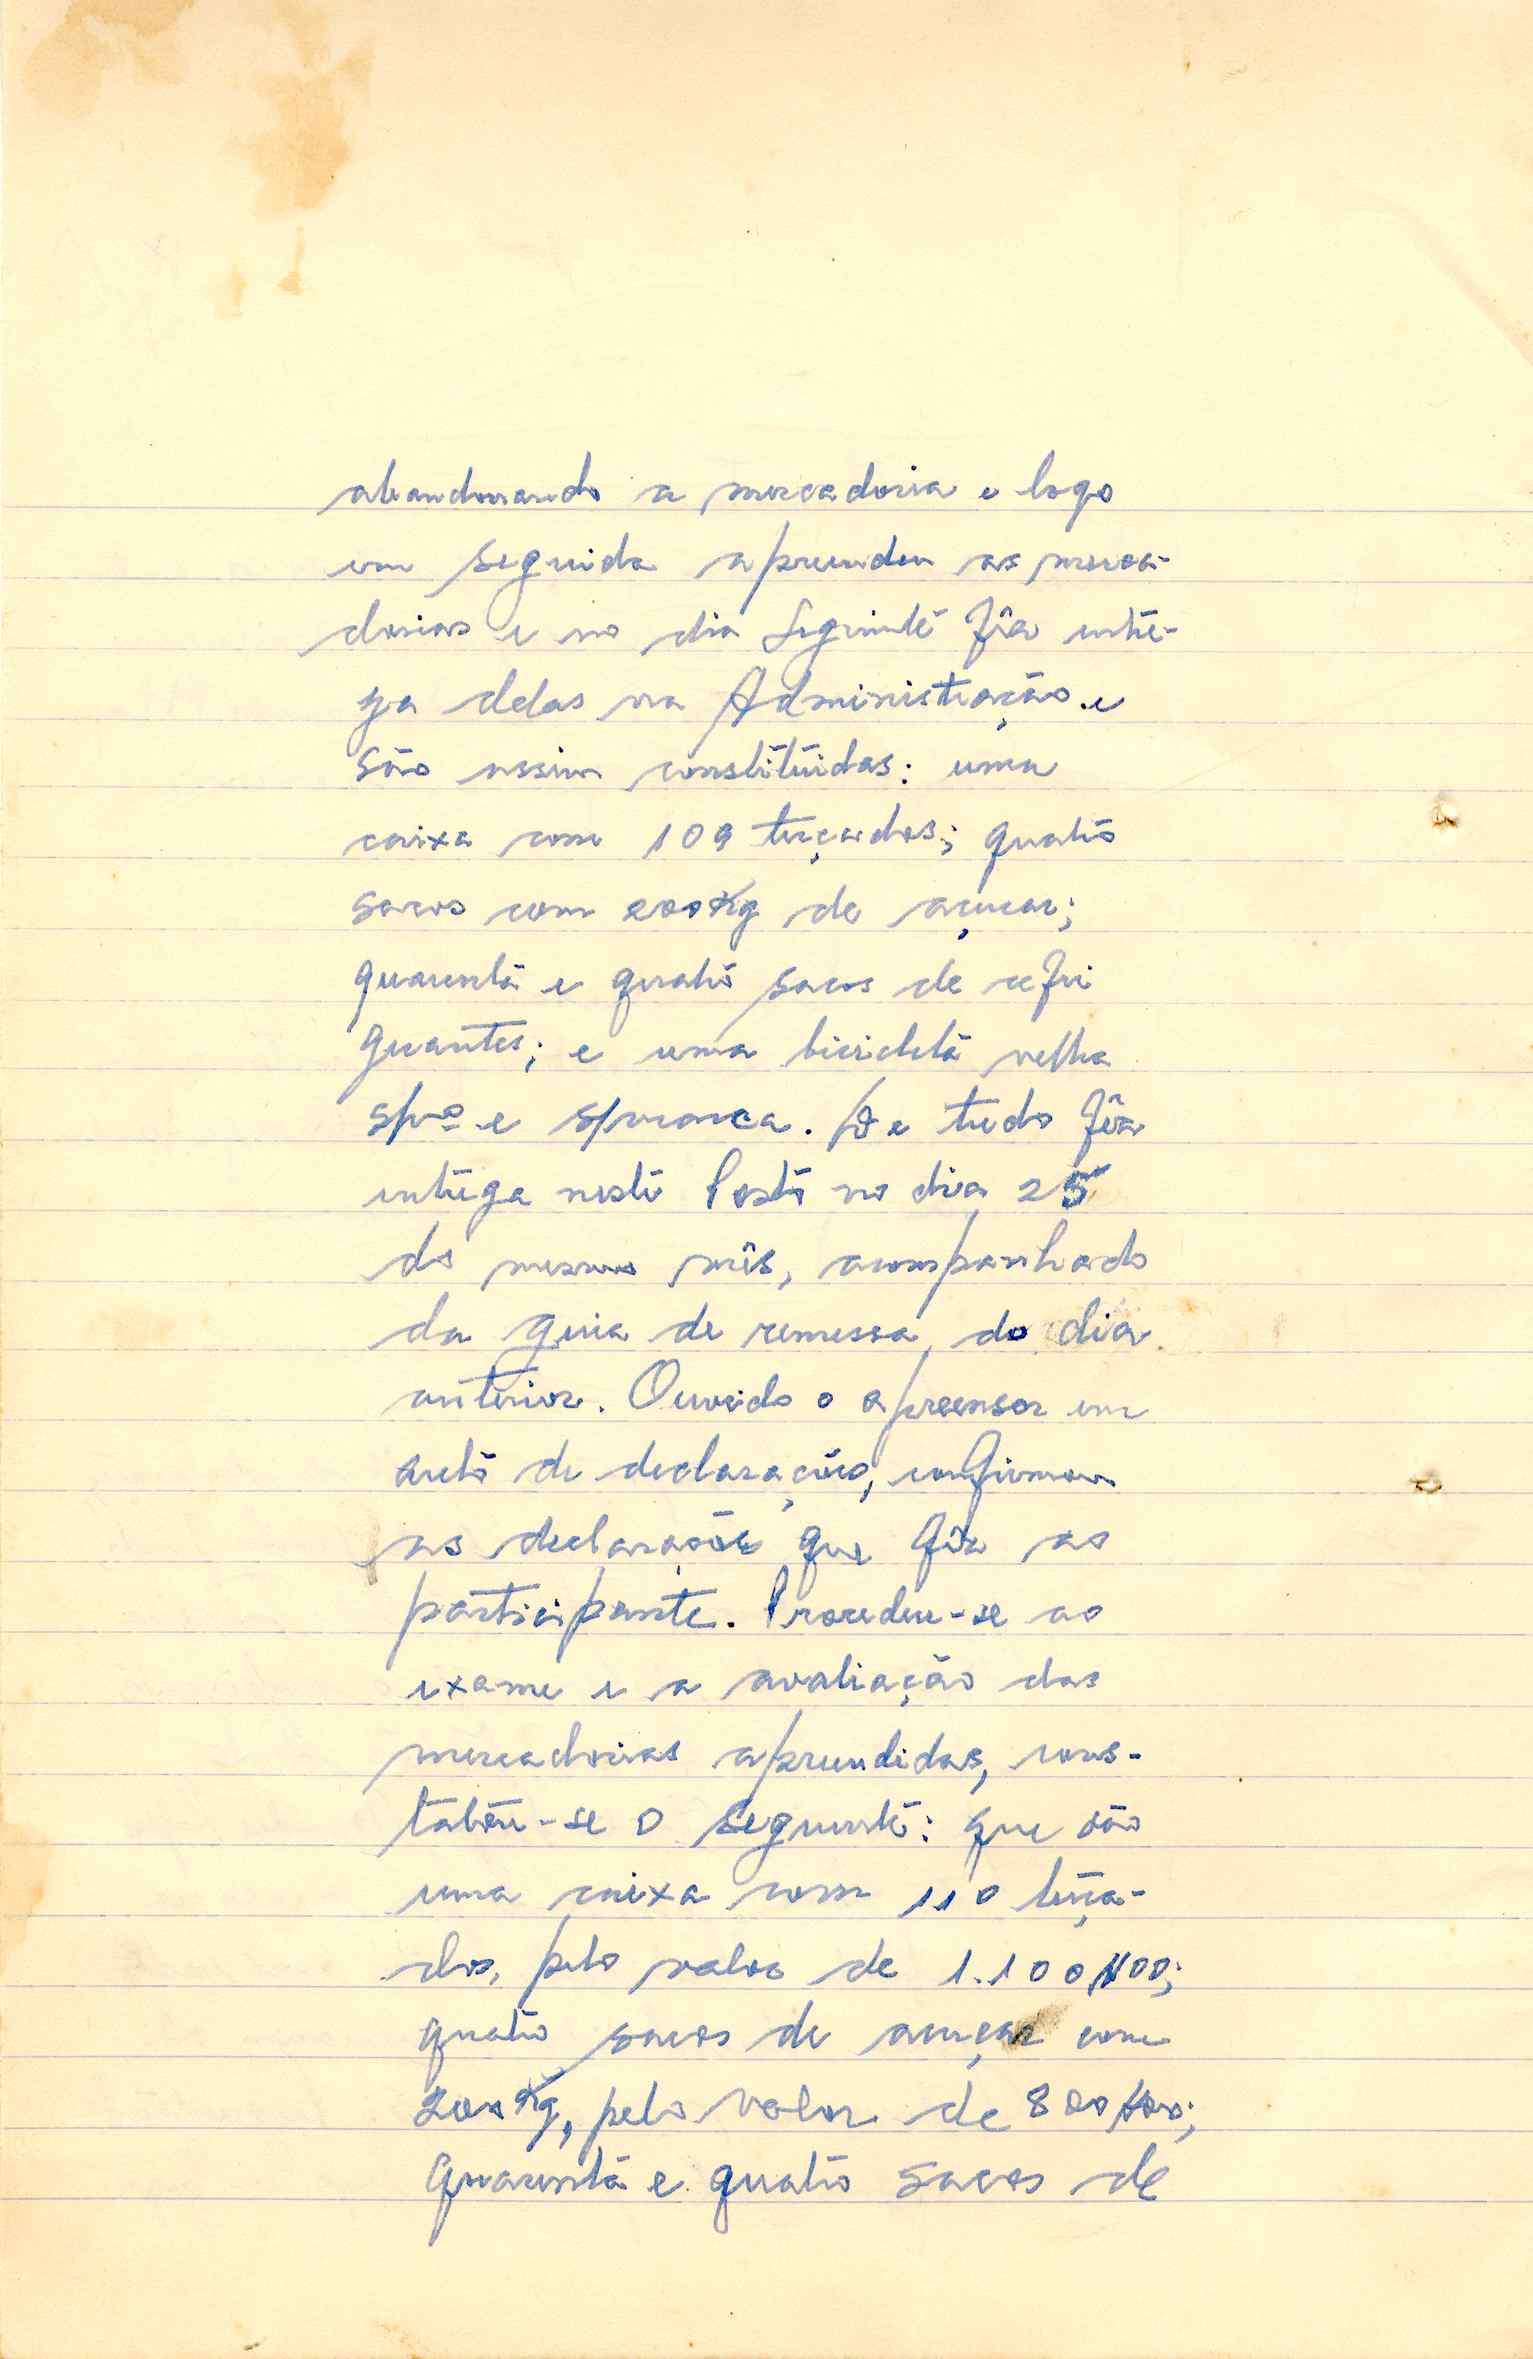 abandonando a mercadoria e logo
em seguida aprendeu as merca-
dorias e no dia seguinte fêz entre-
ga delas na Administração e
são assim constituidas: uma
caixa com 109 terçados; quatro
sacos com 200Kg de açucar;
quarenta e quatro sacos de refri
gerantes; e uma bicicleta velha
s/nº e s/marca. De tudo fêz
entrega neste Posto no dia 25
do mesmo mês, acompanhado
da guia de remessa, do dia
anterior. Ouvido o apreensor em
auto de declarações, confirmou
as declarações que fêz ao
participante. Procedeu-se ao
exame e a avaliação das
mercadorias aprendidas, cons-
tatou-se o seguinte: que são
uma caixa com 110 terça-
dos, pelo valor de 1.100$00;
quatro sacos de açuçar com
200Kg, pelo valor de 800$00;
Quarenta e quatro sacos de